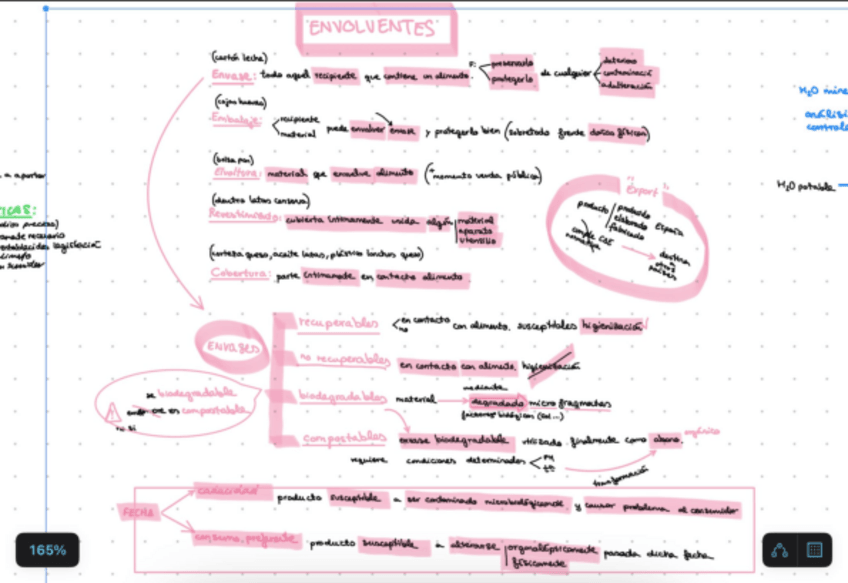 ENVOLVENTES
(cartón leche)
Envase: todo aquel recipiente que contiene un alimento. F: preservarlo protegerlo de cualquier deterioro contaminació adulteración
(cajas huevos)
Embalaje: recipiente material puede envolver envase y protegerlo bien (sobretodo frente daños físicos)
(bolsa pan)
Envoltura: material que envuelve alimento (momento venta pública)
(dentro latas conserva)
Revestimiento: cubierta íntimamente unida algún material aparato utensilio
(corteza queso, aceite latas, plástico lonchas queso)
Cobertura: parte íntimamente en contacto alimento.
"Export"
producto producido elaborado fabricado España
cumple
destino otros países
H2O mine
análisi
controle
H2O potable
n a aportar
TICAS:
legislación
ENVASES
recuperables en contacto no con alimento. susceptibles higienización
no recuperables en contacto con alimento. higienización
biodegradables material mediante degradado micro fragmentos
factores biológicos (col...)
compostables envase biodegradable utilizado finalmente como abono. orgánico
requiere condiciones determinadas PH
transformación
se biodegradable
en compostable
no si
FECHA
caducidad producto susceptible a ser contaminado microbiológicamente y causar problema al consumidor
consumo preferente producto susceptible a alterarse organolépticamente físicamente pasada dicha fecha
165%